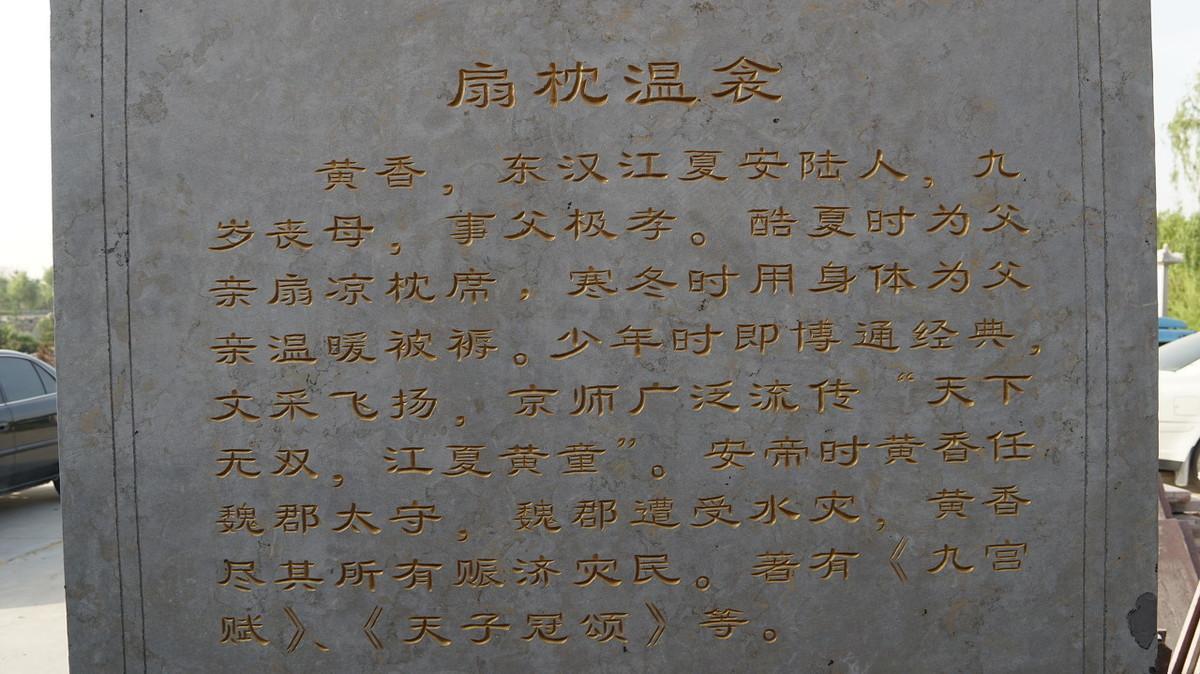 扇枕温衾
黄香，东汉江夏安陆人，九
岁丧母，事父极孝。酷夏时为父
亲扇凉枕席，寒冬时用身体为父
亲温暖被褥。少年时即博通经典，
文采飞扬，京师广泛流传“天下
无双，江夏黄童”。安帝时黄香任
魏郡太守，魏郡遭受水灾，黄香
尽其所有赈济灾民。著有《九宫
赋》、《天子冠颂》等。